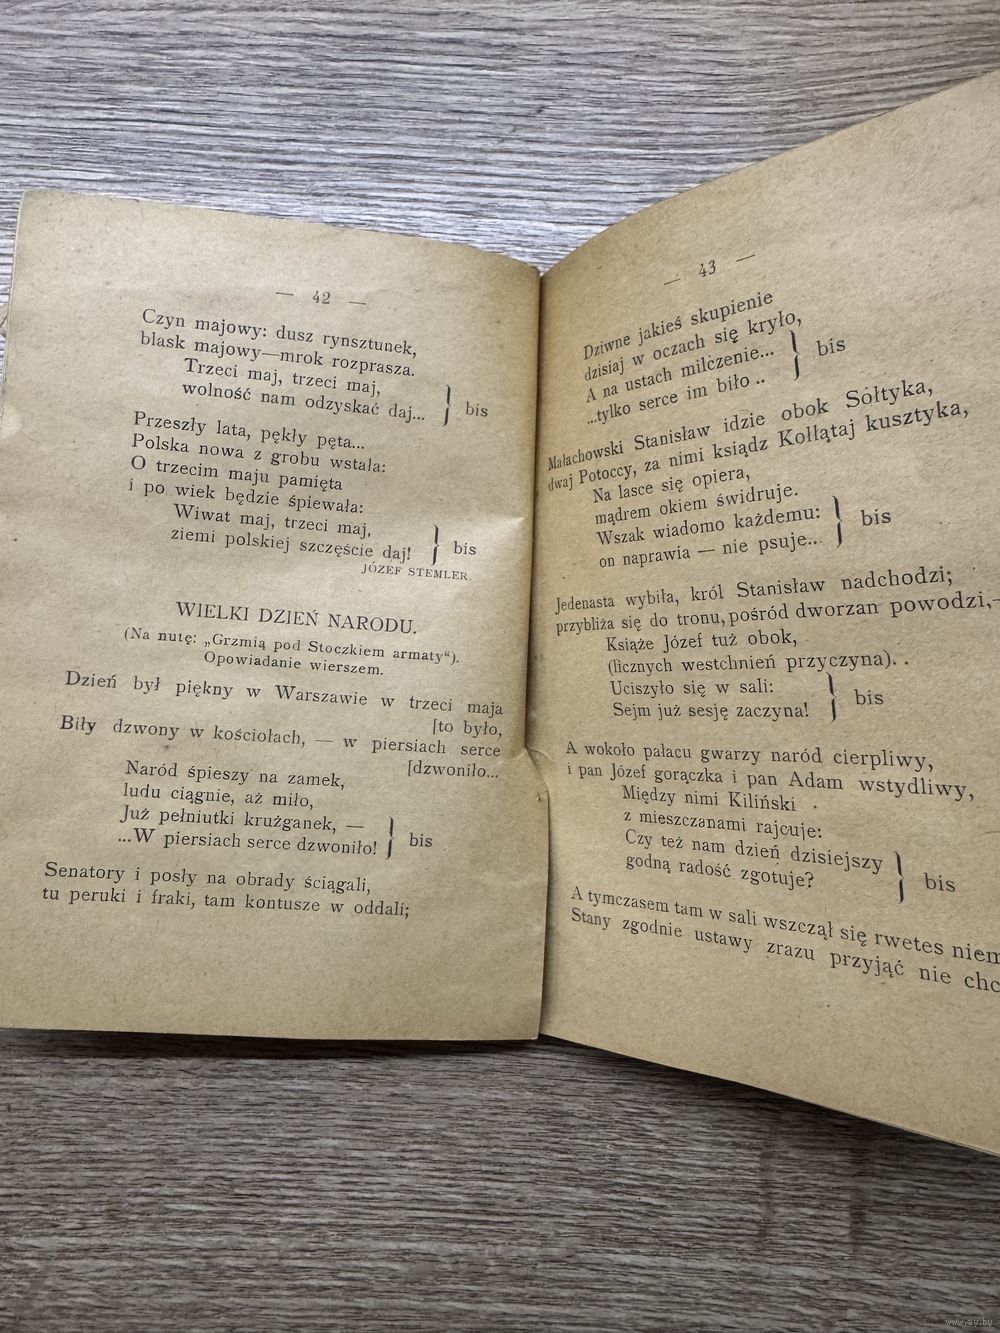 — 42 —
Czyn majowy: dusz rynsztunek,
blask majowy—mrok rozprasza.
Trzeci maj, trzeci maj,
wolność nam odzyskać daj... } bis
Przeszły lata, pękły pęta...
Polska nowa z grobu wstała:
O trzecim maju pamięta
i po wiek będzie śpiewała:
Wiwat maj, trzeci maj,
ziemi polskiej szczęście daj! } bis
JÓZEF STEMLER.
WIELKI DZIEŃ NARODU.
(Na nutę: „Grzmią pod Stoczkiem armaty“).
Opowiadanie wierszem.
Dzień był piękny w Warszawie w trzeci maja
[to było,
Biły dzwony w kościołach, — w piersiach serce
[dzwoniło...
Naród śpieszy na zamek,
ludu ciągnie, aż miło,
Już pełniutki krużganek, —
...W piersiach serce dzwoniło! } bis
Senatory i posły na obrady ściągali,
tu peruki i fraki, tam kontusze w oddali;
— 43 —
Dziwne jakieś skupienie
dzisiaj w oczach się kryło,
A na ustach milczenie...
...tylko serce im biło .. } bis
Małachowski Stanisław idzie obok Sołtyka,
dwaj Potoccy, za nimi ksiądz Kołłątaj kusztyka,
Na lasce się opiera,
mądrem okiem świdruje.
Wszak wiadomo każdemu:
on naprawia — nie psuje... } bis
Jedenasta wybiła, król Stanisław nadchodzi;
przybliża się do tronu, pośród dworzan powodzi,—
Książe Józef tuż obok,
(licznych westchnień przyczyna). .
Uciszyło się w sali:
Sejm już sesję zaczyna! } bis
A wokoło pałacu gwarzy naród cierpliwy,
i pan Józef gorączka i pan Adam wstydliwy,
Między nimi Kiliński
z mieszczanami rajcuje:
Czy też nam dzień dzisiejszy
godną radość zgotuje? } bis
A tymczasem tam w sali wszczął się rwetes niem
Stany zgodnie ustawy zrazu przyjąć nie chc
www.ay.by